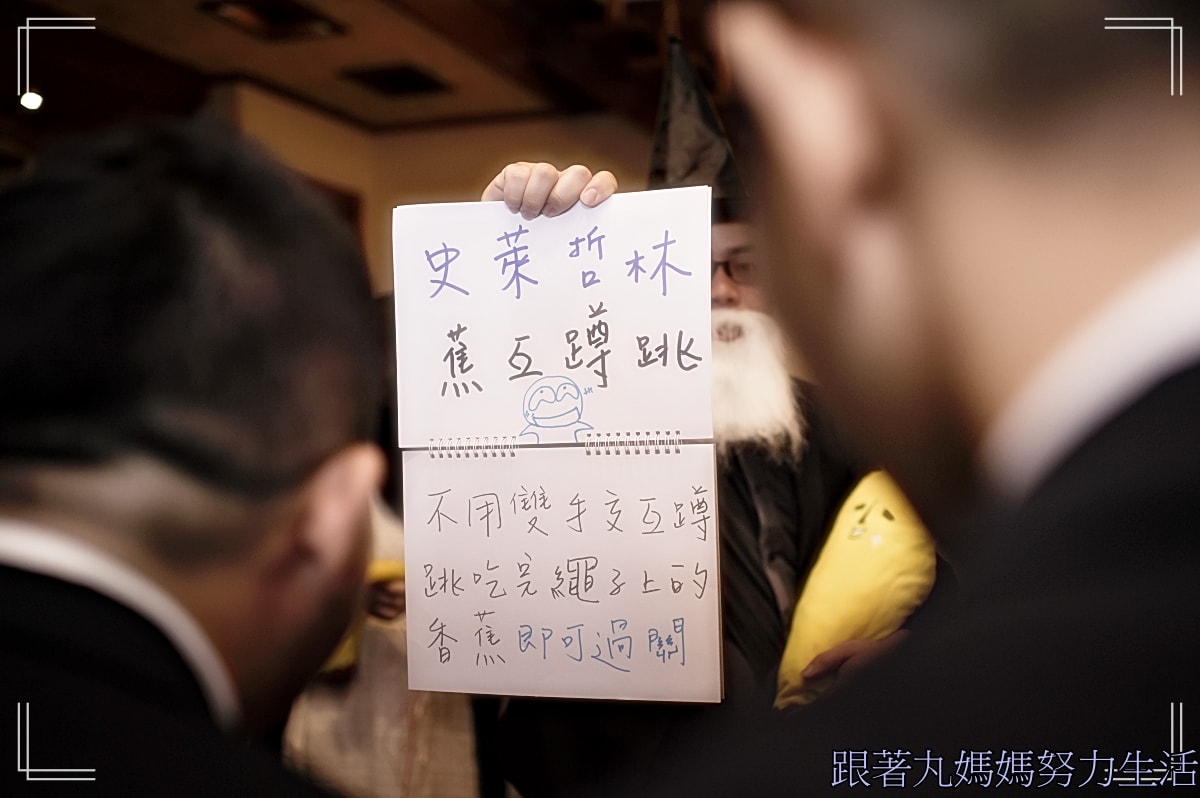 史萊哲林
蕉互蹲跳
不用雙手交互蹲
跳吃完繩子上的
香蕉即可過關
跟著丸媽媽努力生活